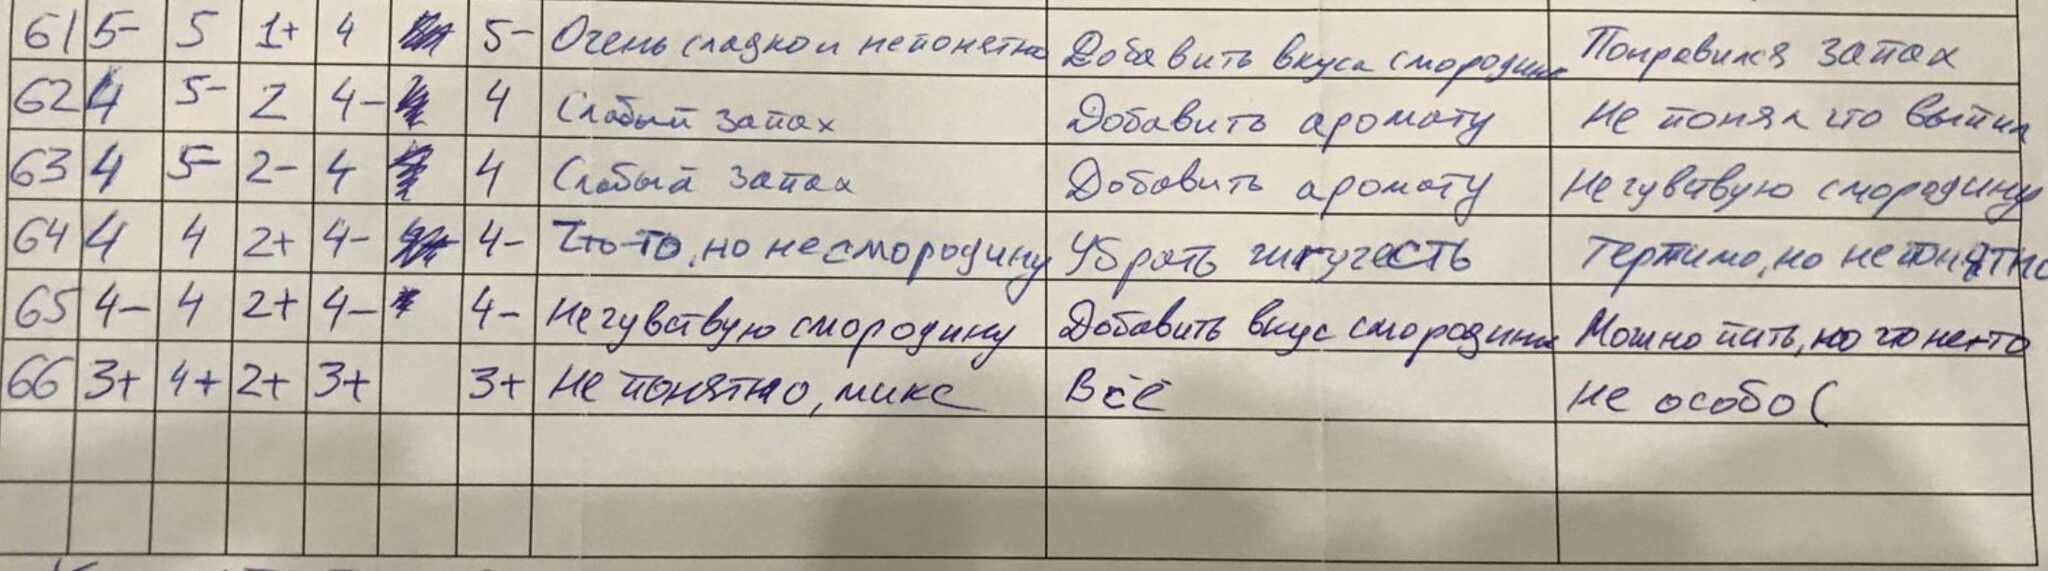 61 5- 5 1+ 4 5- Очень сладко и непонятно Добавить вкуса смородины Понравился запах
62 4 5- 2 4- 4 Слабый запах Добавить аромату Не понял что выпил
63 4 5- 2- 4 4 Слабый запах Добавить аромату Не чувствую смородину
64 4 4 2+ 4- 4- Что-то, но не смородину Убрать жгучесть Терпимо, но непонятно
65 4- 4 2+ 4- 4- Не чувствую смородину Добавить вкус смородины Можно пить, но что не-то
66 3+ 4+ 2+ 3+ 3+ Не понятно, микс Всё Не особо (